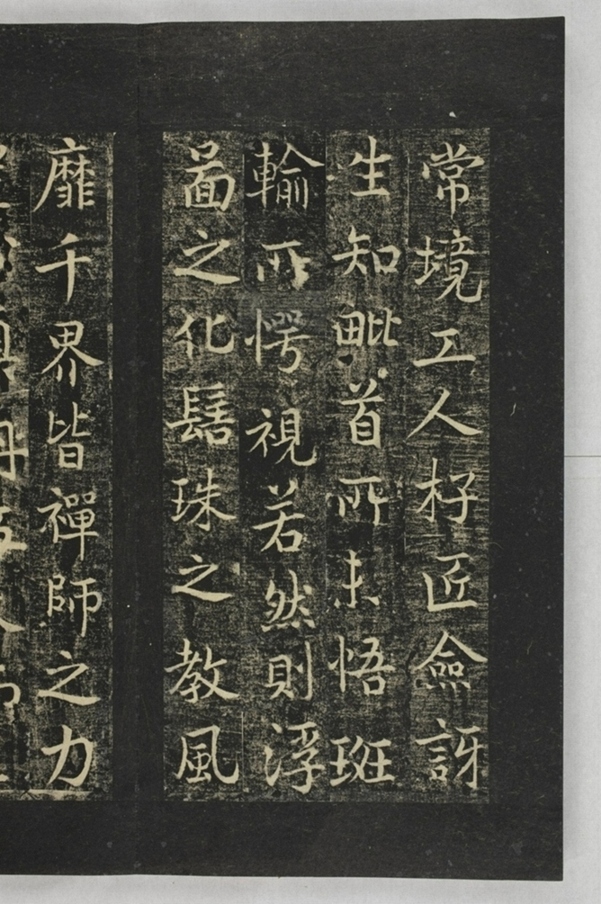 常境工人杍匠僉訝
生知毗首所未悟斑
輸所愕視若然則浮
啚之化髻珠之教風
靡千界皆禪師之力